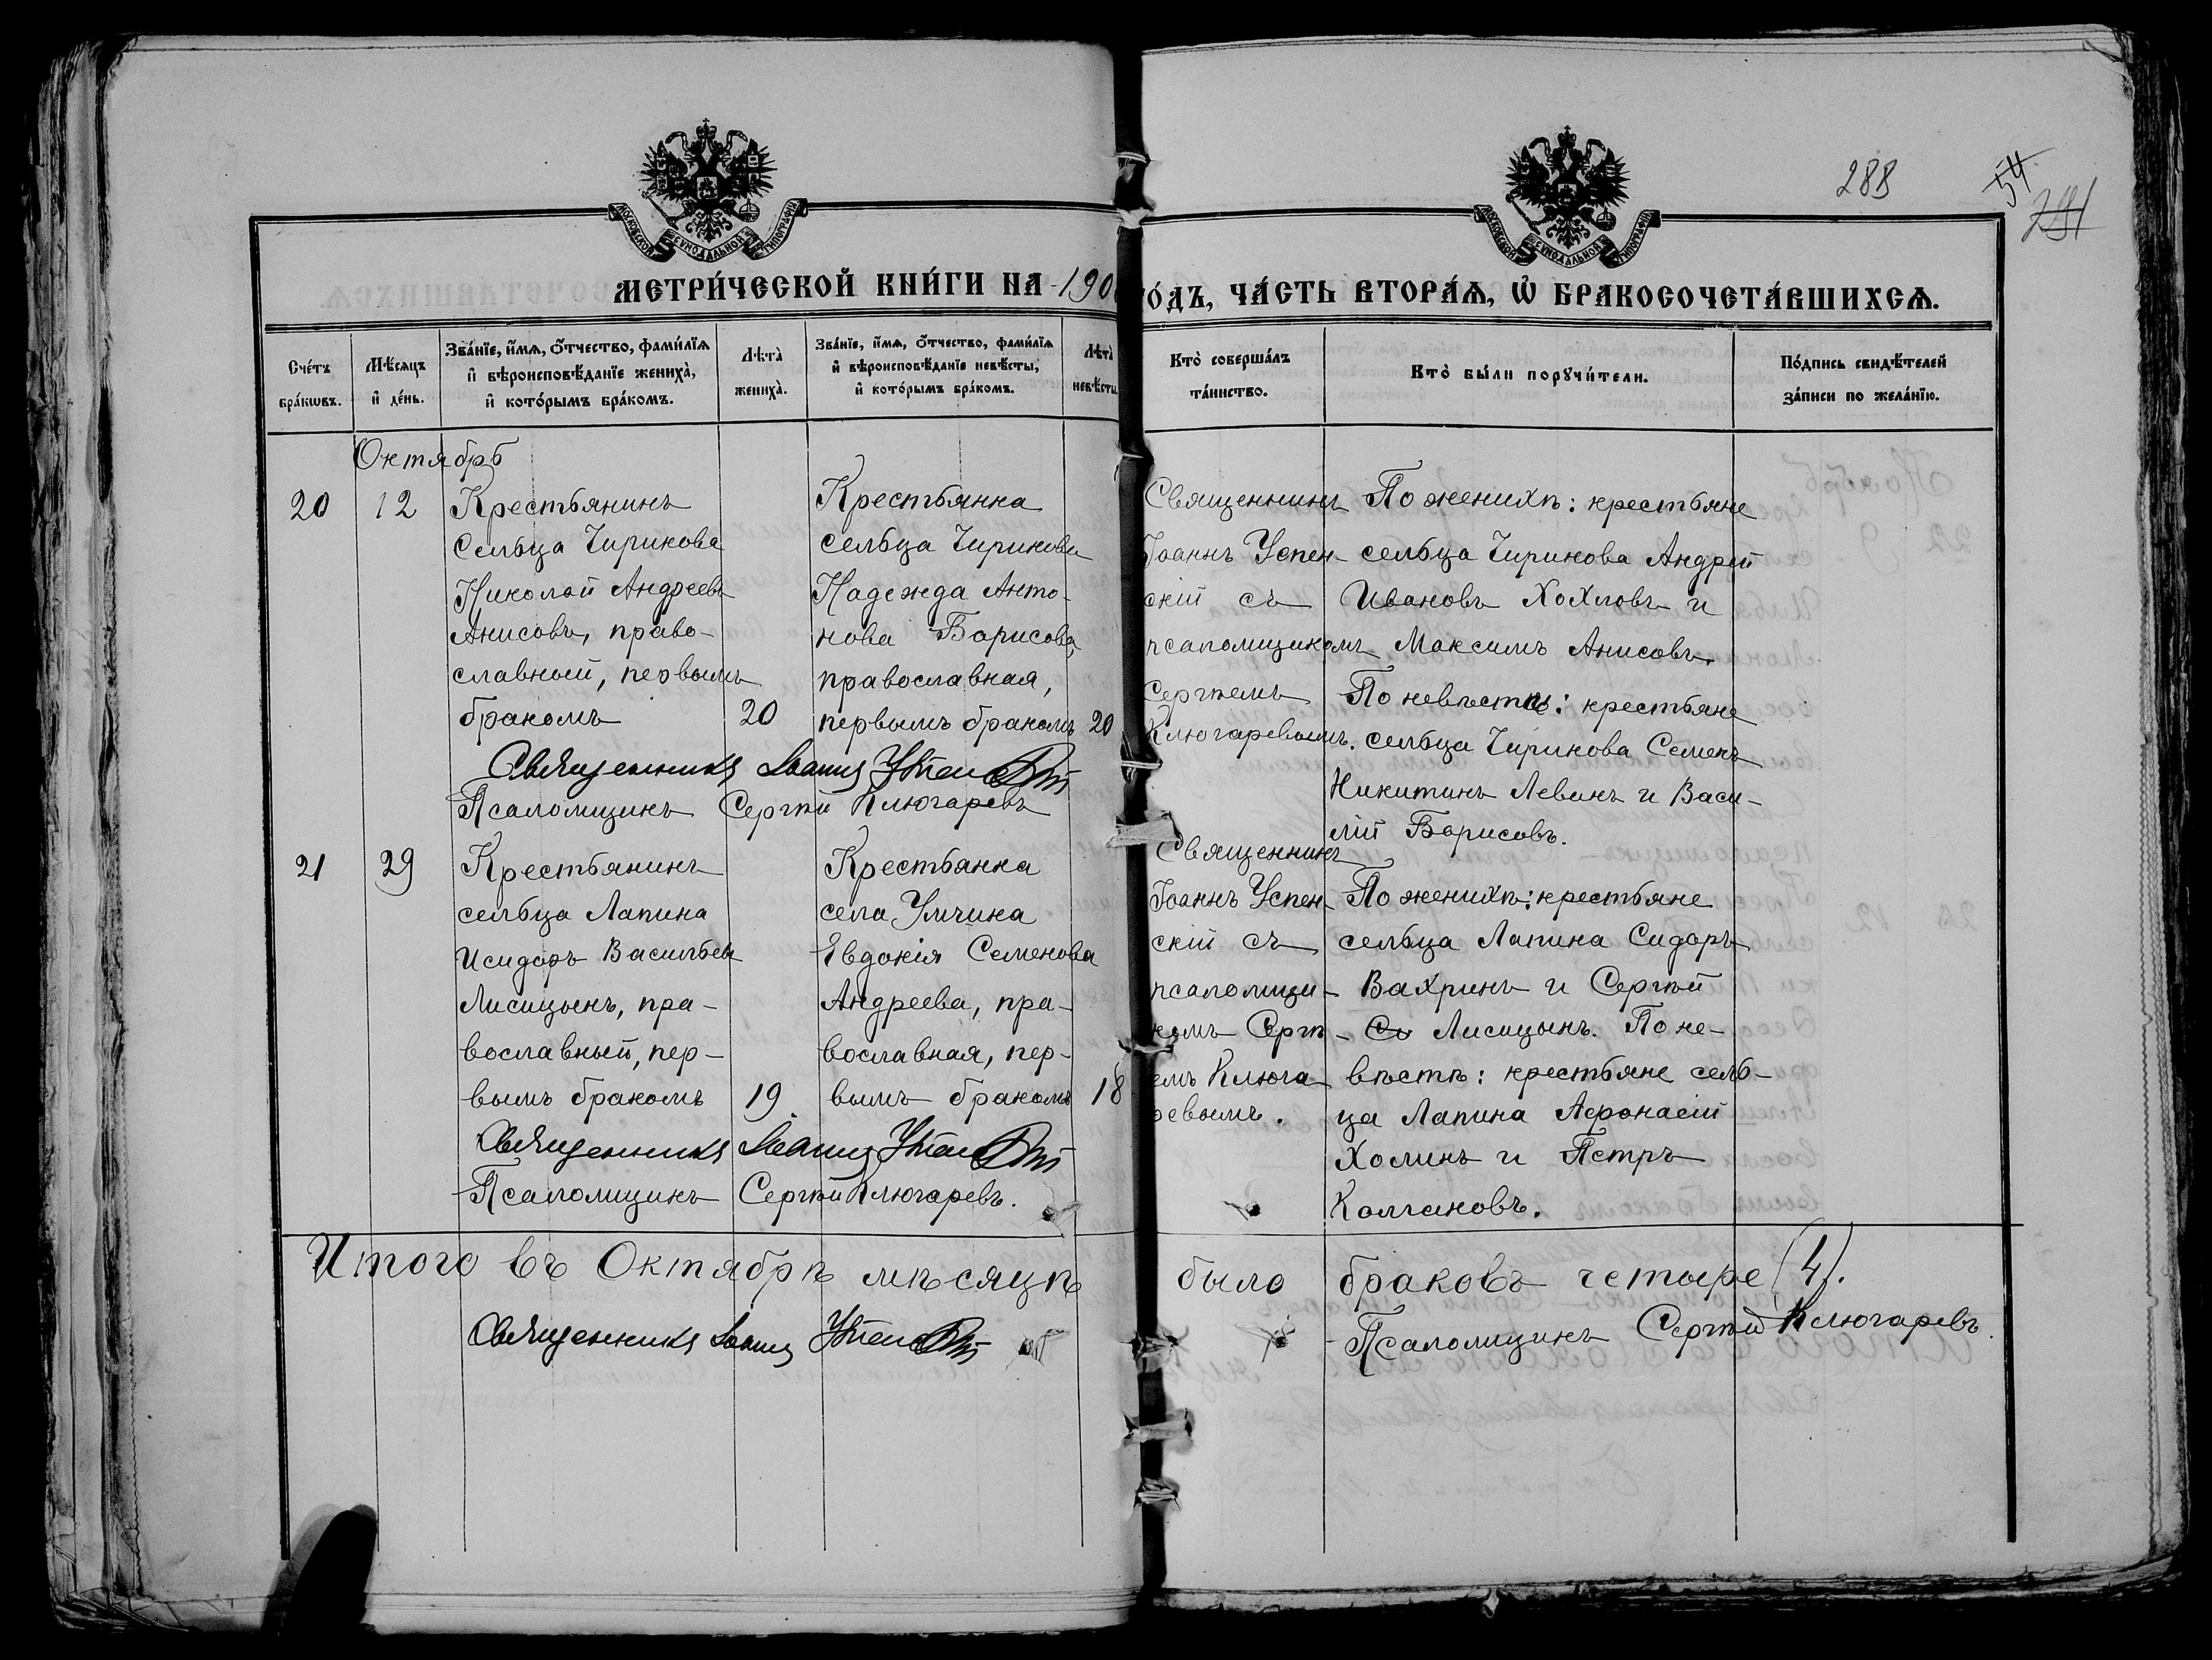 288
54
291
МОСКОВСКОЙ СѴНОДАЛЬНОЙ ТИПОГРАФІИ
МОСКОВСКОЙ СѴНОДАЛЬНОЙ ТИПОГРАФІИ
МЕТРИ́ЧЕСКОЙ КНИ́ГИ НА 190
ГО́ДЪ, ЧА́СТЬ ВТОРА́Ѧ, Ѡ҆ БРАКОСОЧЕТА́ВШИХСѦ.
Сче́тъ бра́кѡвъ.
Мѣ́сяцъ и҆ де́нь.
Зва́нїе, и҆́мѧ, ѻ҆́тчество, фами́лїѧ
и҆ вѣроисповѣ́данїе жениха̀,
и҆ кото́рымъ бра́комъ.
Лѣта̀ жениха̀.
Зва́нїе, и҆́мѧ, ѻ҆́тчество, фами́лїѧ
и҆ вѣроисповѣ́данїе невѣ́сты,
и҆ кото́рымъ бра́комъ.
Лѣта̀ невѣ́сты
Кто̀ соверша́лъ
та́инство.
Кто̀ бы́ли порꙋчи́тели.
По́дпись свидѣ́телей
за́писи по жела́нїю.
Октябрь
20
12
Крестьянинъ
сельца Чирикова
Николай Андреевъ
Анисовъ, право-
славный, первымъ
бракомъ
20
Крестьянка
сельца Чирикова
Надежда Анто-
нова Борисова,
православная,
первымъ бракомъ
20
Священникъ
Іоаннъ Успен-
скій съ
псаломщикомъ
Сергѣемъ
Ключаревымъ.
По женихѣ: крестьяне
сельца Чирикова Андрей
Ивановъ Хохловъ и
Максимъ Анисовъ.
По невѣстѣ: крестьяне
сельца Чирикова Семенъ
Никитинъ Левинъ и Васи-
лій Борисовъ.
Священникъ Іоаннъ Успенскій
Псаломщикъ Сергѣй Ключаревъ
21
29
Крестьянинъ
сельца Лапина
Исидоръ Васильевъ
Лисицынъ, пра-
вославный, пер-
вымъ бракомъ
19.
Крестьянка
села Умчина
Евдокія Семенова
Андреева, пра-
вославная, пер-
вымъ бракомъ
18
Священникъ
Іоаннъ Успен-
скій съ
псаломщи-
комъ Сергѣ-
емъ Ключа-
ревымъ.
По женихѣ: крестьяне
сельца Лапина Сидоръ
Вахринъ и Сергѣй
Си Лисицынъ. По не-
вѣстѣ: крестьяне сель-
ца Лапина Афонасій
Холинъ и Петръ
Колчановъ.
Священникъ Іоаннъ Успенскій
Псаломщикъ Сергѣй Ключаревъ.
Итого въ Октябрѣ мѣсяцѣ было браковъ четыре (4).
Священникъ Іоаннъ Успенскій
Псаломщикъ Сергѣй Ключаревъ.